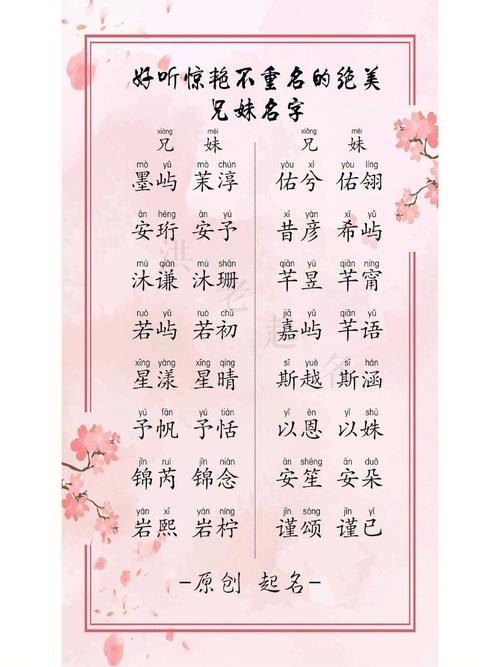 好听惊艳不重名的绝美
兄妹名字
xiōng mèi xiōng mèi
兄 妹 兄 妹
mò yǔ mò chún yòu xī yòu líng
墨屿 茉淳 佑兮 佑翎
ān héng ān yú xī yàn xī yǔ
安珩 安予 昔彦 希屿
mù qiān mù shān qiān yù qiān nìng
沐谦 沐珊 芊昱 芊甯
ruò yǔ ruò chū jiā yǔ qiān yǔ
若屿 若初 嘉屿 芊语
xīng yàng xīng qíng sī yuè sī hán
星漾 星晴 斯越 斯涵
yú fān yú tián yǐ ēn yǐ shū
予帆 予恬 以恩 以姝
jǐn ruì jǐn niàn ān shēng ān duǒ
锦芮 锦念 安笙 安朵
yán xī yán níng jǐn sòng jǐn yǐ
岩熙 岩柠 谨颂 谨已
-原创 起名-
洪老起名